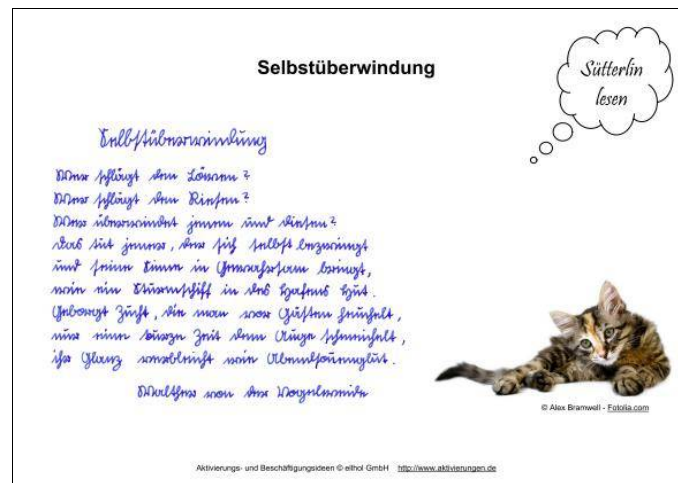 Selbstüberwindung
Sütterlin
lesen
Selbstüberwindung
Wer schlägt den Löwen?
Wer schlägt den Riesen?
Wer überwindet jenen und diesen?
Das tut jener, der sich selbst bezwingt
und seine Sinne in Gewahrsam bringt,
wie ein Sturmschiff in des Hafens Hut.
Geborgt Zucht, die man vor Gästen heuchelt,
nur eine kurze Zeit dem Auge schmeichelt,
ihr Glanz verbleicht wie Abendsonnenglut.
Walther von der Vogelweide
© Alex Bramwell - Fotolia.com
Aktivierungs- und Beschäftigungsideen © ellhol GmbH http://www.aktivierungen.de